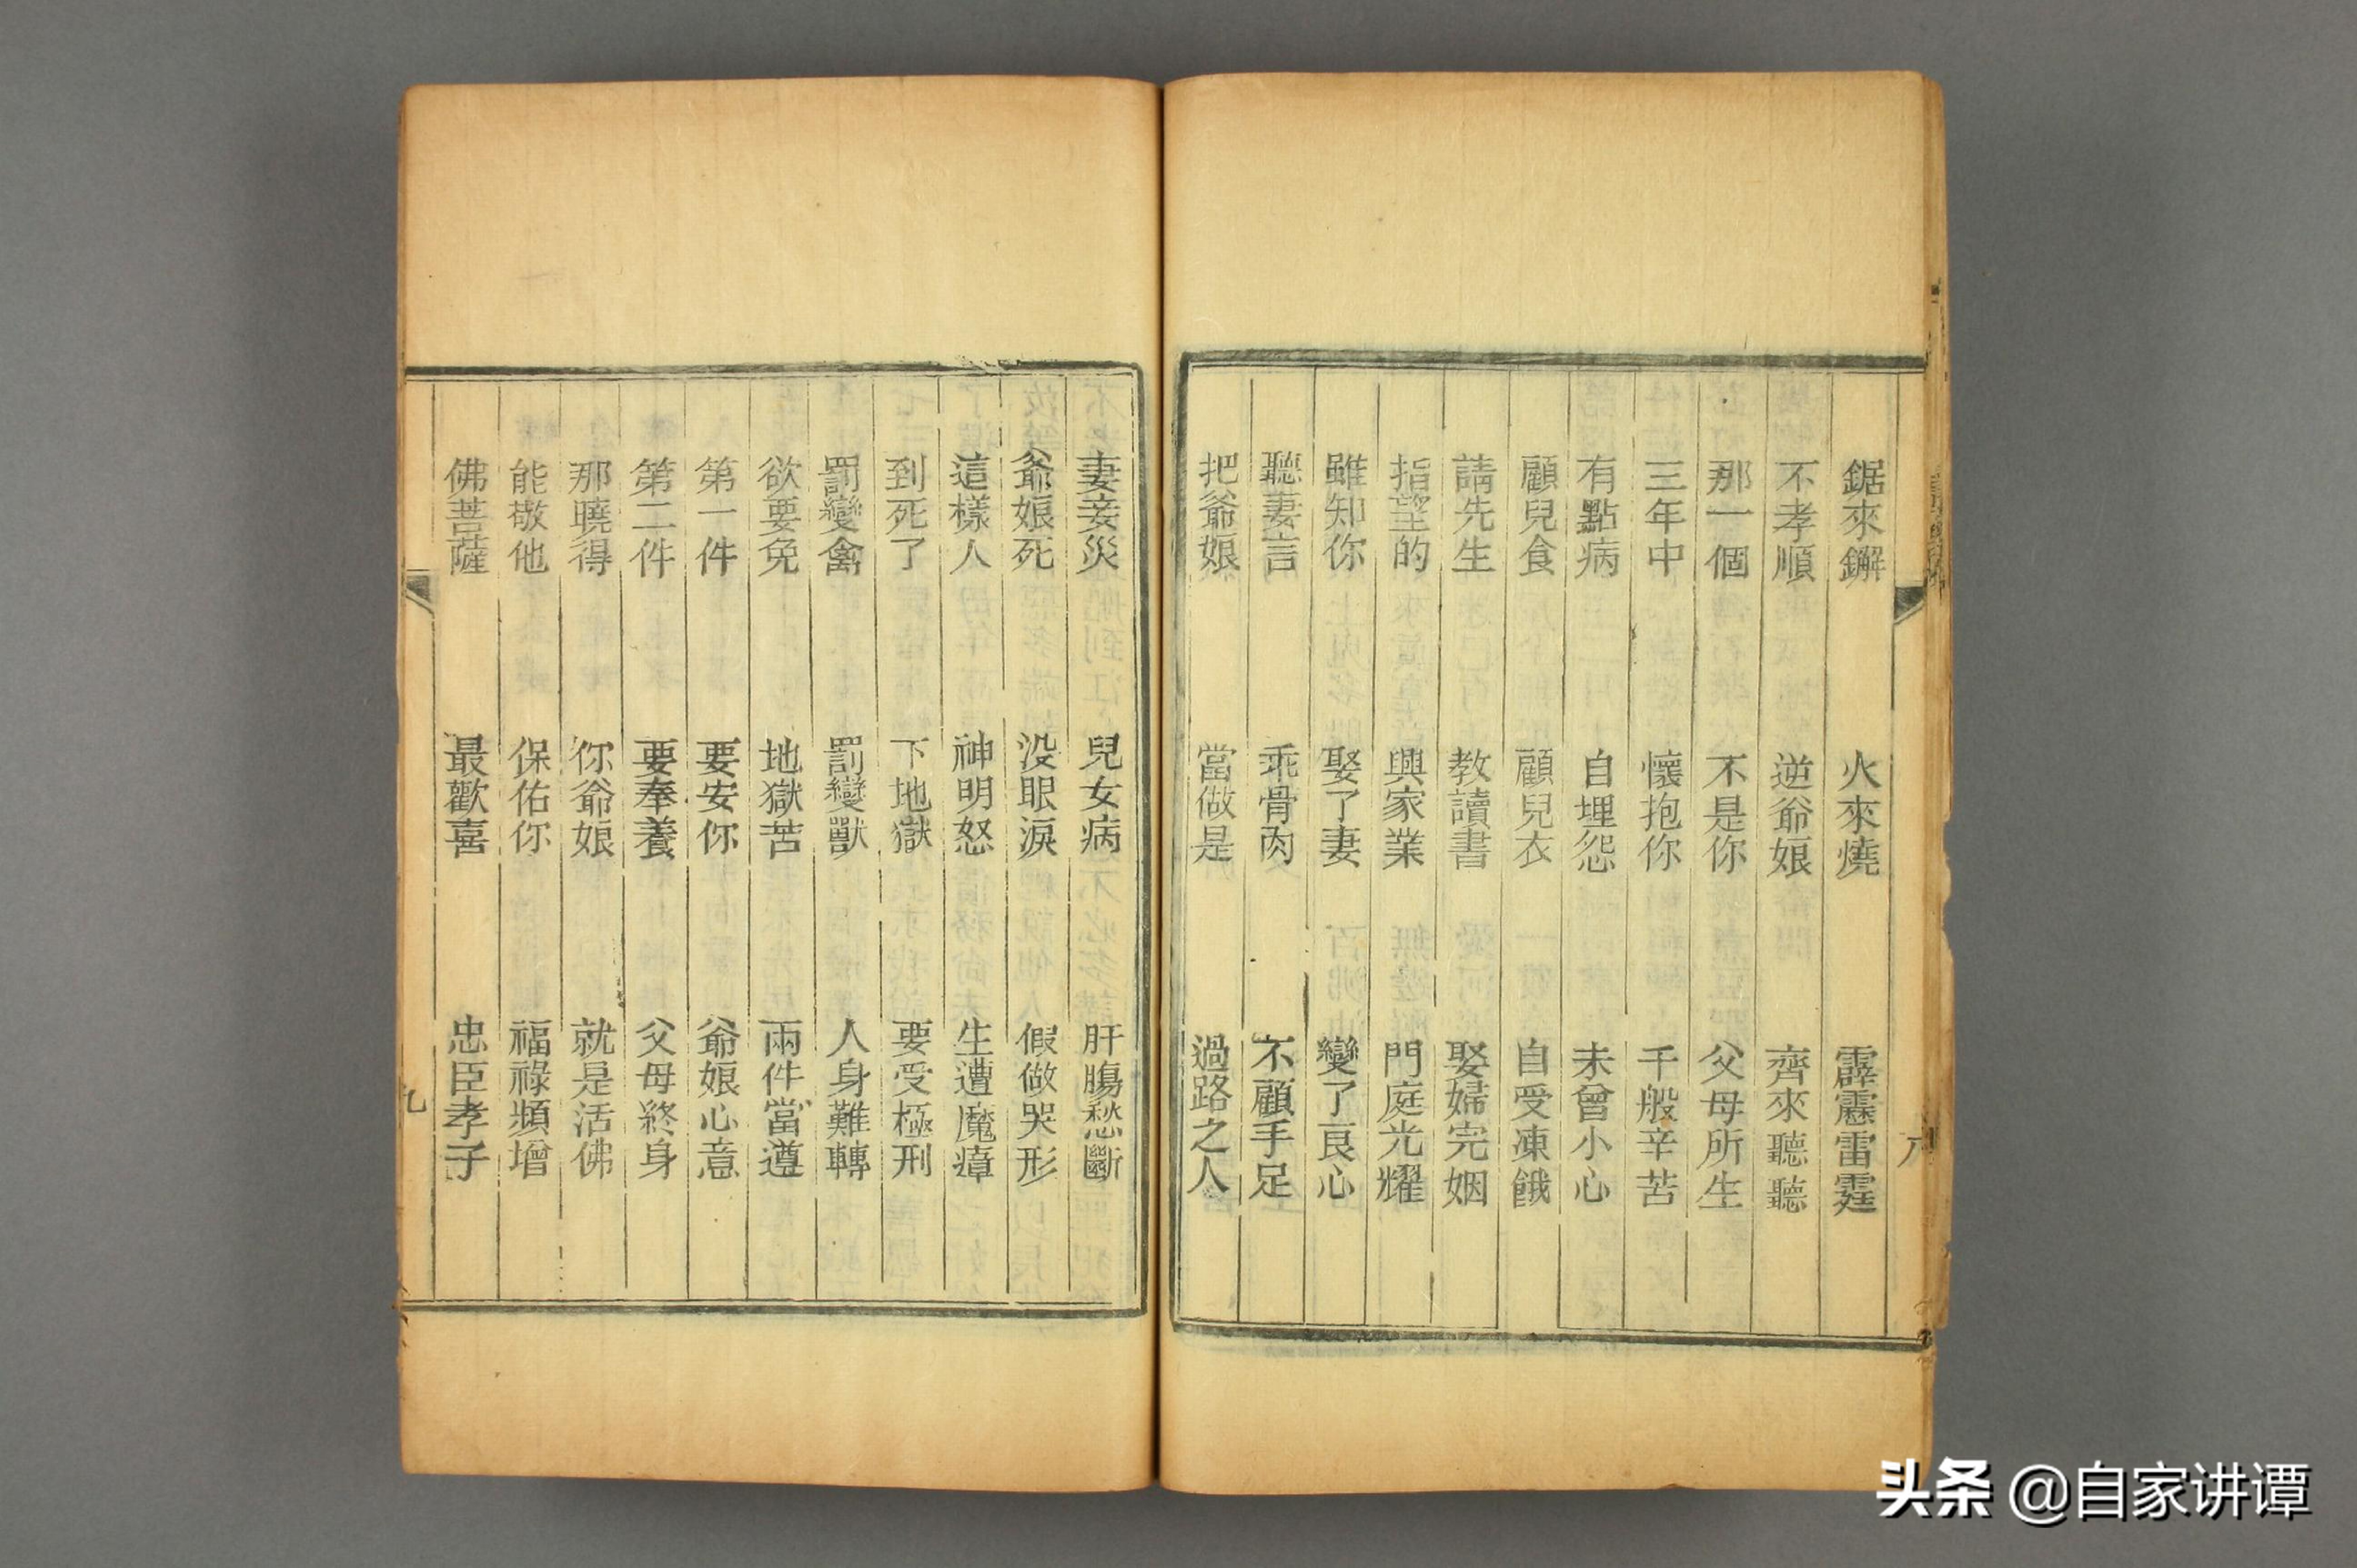 鋸來鐦 火來燒 霹靂雷霆
不孝順 逆爺娘 齊來聽聽
那一個 不是你 父母所生
三年中 懷抱你 千般辛苦
有點病 自埋怨 未曾小心
顧兒食 顧兒衣 自受凍餓
請先生 教讀書 娶婦完姻
指望的 興家業 門庭光耀
雖知你 娶了妻 變了良心
聽妻言 乖骨肉 不顧手足
把爺娘 當做是 過路之人
八
妻妾災 兒女病 肝膓愁斷
爺娘死 没眼淚 假做哭形
這樣人 神明怒 生遭魔瘴
到死了 下地獄 要受極刑
罰變禽 罰變獸 人身難轉
欲要免 地獄苦 兩件當遵
第一件 要安你 爺娘心意
第二件 要奉養 父母終身
那曉得 你爺娘 就是活佛
能敬他 保佑你 福祿頻增
佛菩薩 最歡喜 忠臣孝子
九
头条 @自家讲谭